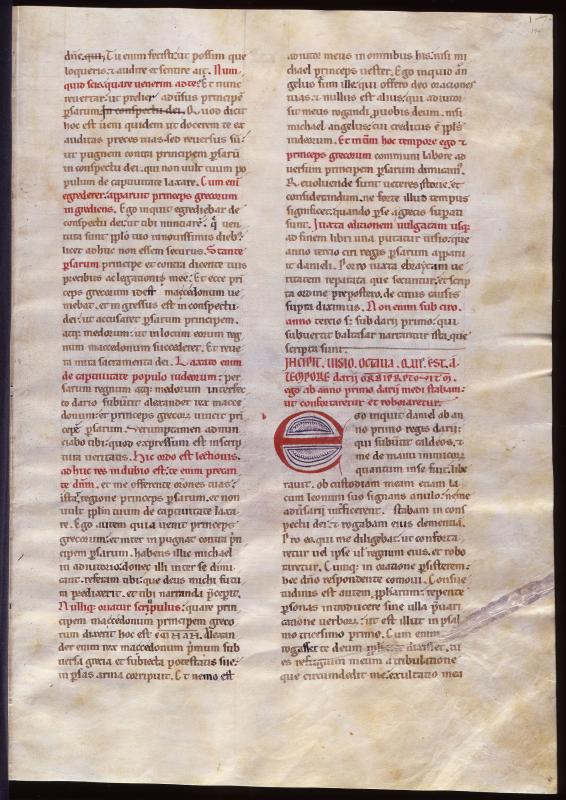 dñe. qui, Tu enim fecisti ut possim que
loqueris et audire et sentire ait. Num
quid scis quare venerim ad te? Et nunc
revertar ut prelier adūsus principē
psarum. In conspectu dei. Quod dicit
hoc est veni quidem ut docerem te ex
auditas preces tuas. sed reversus sū
ut pugnem contra principem psarū
in conspectu dei. qui non vult tuum po
pulum de captivitate laxare. Cum enī
egrederer. apparuit princeps grecorum
ingrediens. Ego inquit egrediebar de
conspectu dei. ut tibi nunciarē. q̄ ven
tura sunt pplo tuo novissimis dieb;
licet adhuc non essem securus. Stante
psarum principe et contra dicente tuis
precibus ac legationis mee. Et ecce pri
ceps grecorum id est macedonum ve
niebat. et ingressus est in conspectu
dei. ut accusaret psarum principem.
atq; medorum. ut in locum eorum reg
num macedonum succederet. Et reve
ra mira sacramenta dei. Laxato enim
de captivitate populo iudeorum: per
sarum regnum atq; medorum interfec
to dario subvertit alexander rex mace
donum. et princeps grecorum vincit pri
cipē psarum. Verumptamen adnun
ciabo tibi quod expressum est in scrip
tura veritatis. Hic ordo est lectionis.
adhuc res in dubio est. te enim precan
te dūm. et me offerente orōnes tuas.
regione princeps psarum. et non
vult pplm tuum de captivitate laxa
re. Ego autem quia venit princeps
grecorum. et inter in pugnat contra pn
cipem psarum. habens illic michael
in adiutorio. donec illi inter se dimi
cant. referam tibi que deus michi futu
ra predixerit. et tibi narranda pcepit.
Nulliq; oriatur scripulus: quare prin
cipem maccedonum principem greco
rum dixerit hoc est Alexan
der enim rex maccedonum pmum sub
versa grecia et subiecta potestatis sue.
in psas arma corripuit. Et nemo est
adiutor meus in omnibus his. nisi mi
chael princeps vester. Ego inquid an
gelus sum ille. qui offero deo orationes
tuas. et nullus est alius. qui adiutor
sit meus rogandi pro vobis deum. nisi
michael angelus. cui creditus ē ppls
iudeorum. Et in eum hoc tempore ego et
princeps grecorum communi labore ad
versum principem psarum dimicam.
Et evolvende sunt veteres storie. et
considerandum. ne forte illud tempus
significet. quando pse a grecis supati
sunt. Juxta edicionem vulgatam usq;
ad finem libri una putatur visio. que
anno tercio ciri regis psarum apparu
it danieli. Porro iuxta ebraycam ve
ritatem reparata que secuntur. et scrip
ta ordine prepostero. de cuius causis
supra diximus. Non enim sub ciro.
anno tercio s; sub darii primo. qui
subvertit baltasar narrantur ista. que
scripta sunt.
INCIPIT VISIO OCTAVA. QUE EST. A
TEMPORE darii
ego ab anno primo darii medi stabam.
ut confortaretur et roboraretur.
Ego inquit daniel ab an
no primo regis darii.
qui subvertit caldeos. et
me de manu inimicor
quantum in se fuit. libe
ravit. ob custodiam meam etiam la
cum leonum suo signans anulo: ne me
adūsarii interficerent. stabam in cons
pectu dei. et rogabam eius clementiā.
Pro eo. qui me diligebat. ut conforta
retur vel ipse vel regnum eius. et robo
raretur. Cumq; in oratione psisterem:
hec dño respondente cognovi. Consue
tudinis est autem. ppharum: repente
psonas introducere sine ulla pfati
catione verborum: ut est illut in psal
mo tricesimo primo. Cum enim
rogasset te deum et dixisset. tu
es refugium meum a tribulatione
que circumdedit me. exultatio mea